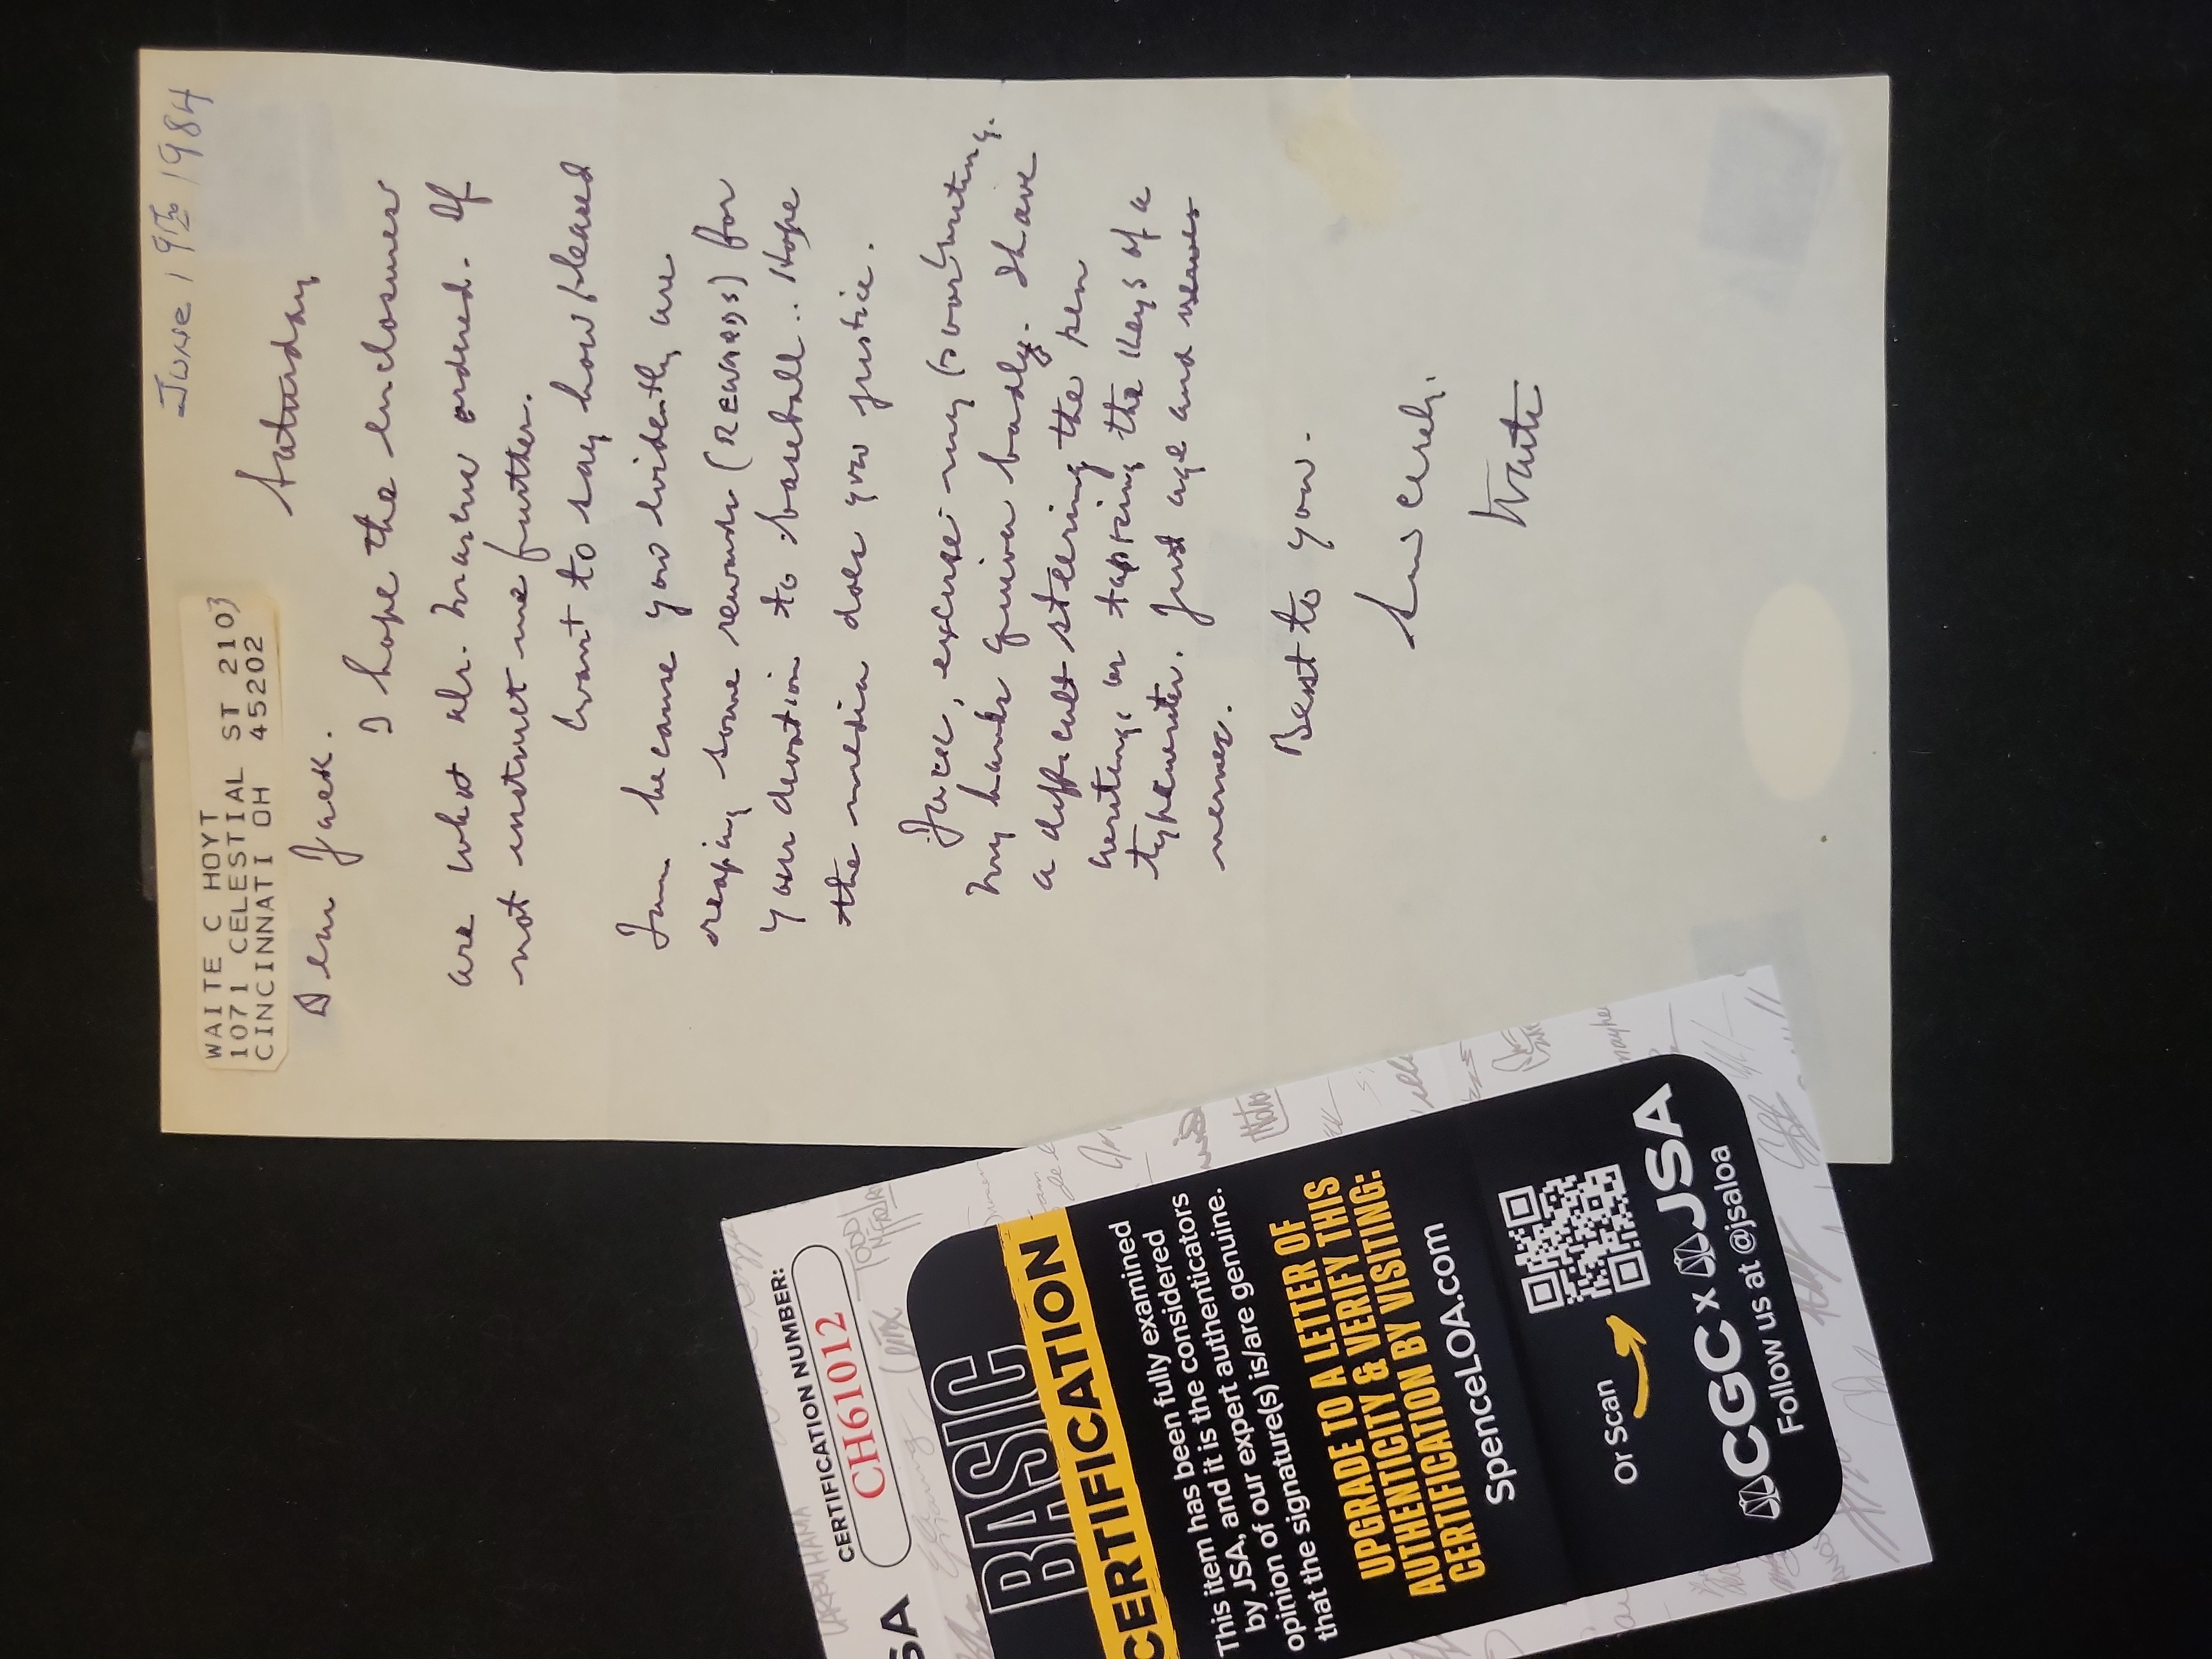 June 19th 1984
WAITE C HOYT
1071 CELESTIAL ST 2103
CINCINNATI OH 45202
Saturday
Dear Jack.
I hope the enclosures
are what Mr. ordered. If
not instruct me further.
Want to say how pleased
I am because you evidently are
reaping some rewards (REWARDS) for
your devotion to baseball.. Hope
the media does you justice.
Jack, excuse my poor writing.
My hands quiver badly. I have
a difficult steering the pen
writing or tapping the keys of a
typewriter. Just age and
nerves.
Best to you.
Sincerely.
Waite
SA
CERTIFICATION NUMBER:
CH61012
BASIC
CERTIFICATION
This item has been fully examined
by JSA, and it is the considered
opinion of our expert authenticators
that the signature(s) is/are genuine.
UPGRADE TO A LETTER OF
AUTHENTICITY & VERIFY THIS
CERTIFICATION BY VISITING:
SpenceLOA.com
Or Scan
CGC x JSA
Follow us at @jsaloa
LARRY HAMA
TODD